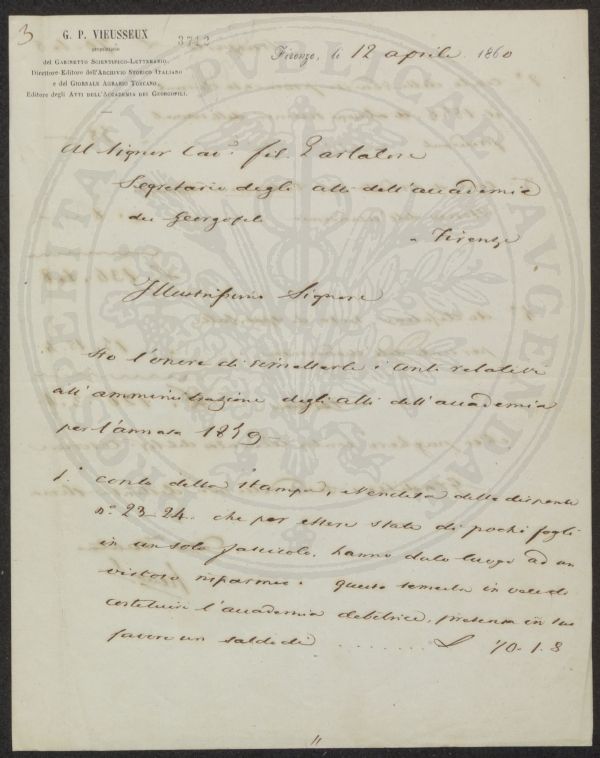 3
G. P. VIEUSSEUX
PROPRIETARIO
del GABINETTO SCIENTIFICO-LETTERARIO,
Direttore-Editore dell'ARCHIVIO STORICO ITALIANO
e del GIORNALE AGRARIO TOSCANO,
Editore degli ATTI DELL'ACCADEMIA DEI GEORGOFILI.
3712
Firenze, li 12 aprile 1860
Al Signor Cav.e fil. Parlatore
Segretario degli atti dell'accademia
dei Georgofili
Firenze
Illustrissimo Signore
Ho l'onore di rimetterle i conti relativi
all'amministrazione degli atti dell'accademia
per l'annata 1859
1.° conto della stampa, e vendita delle dispense
n.° 23-24. che per essere state di pochi fogli
in un solo fascicolo, hanno dato luogo ad un
vistoso risparmio. Questo semestre in vece di
costituire l'accademia debitrice, presenta in suo
favore un saldo di ....... L 70.1.8
PROSPERITATI PUBLICAE AUGENDAE